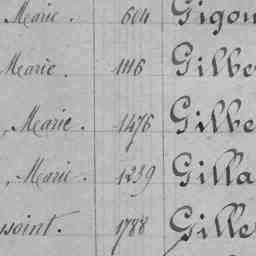 Marie. 604 Gigou
Marie. 1116 Gilbe
, Marie. 1476 Gilbe
, Marie. 1239 Gilla
ssoint. 1788 Gille